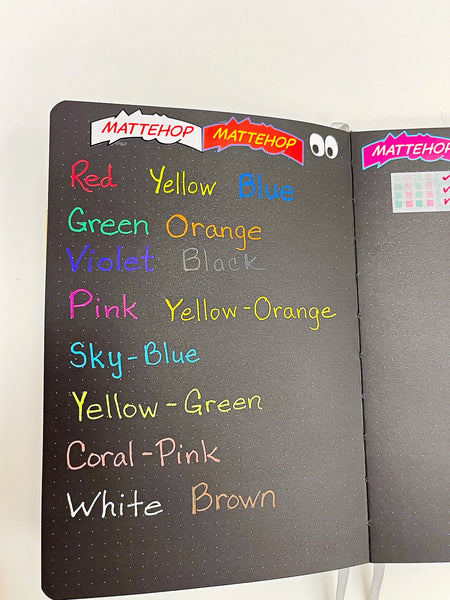 MATTEHOP MATTEHOP
MATTEHOP
Red Yellow Blue
Green Orange
Violet Black
Pink Yellow-Orange
Sky-Blue
Yellow-Green
Coral-Pink
White Brown